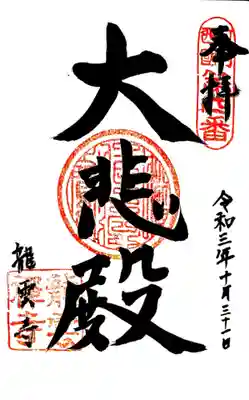 奉拝
令和三年十月三十一日
大悲殿
龍雲寺